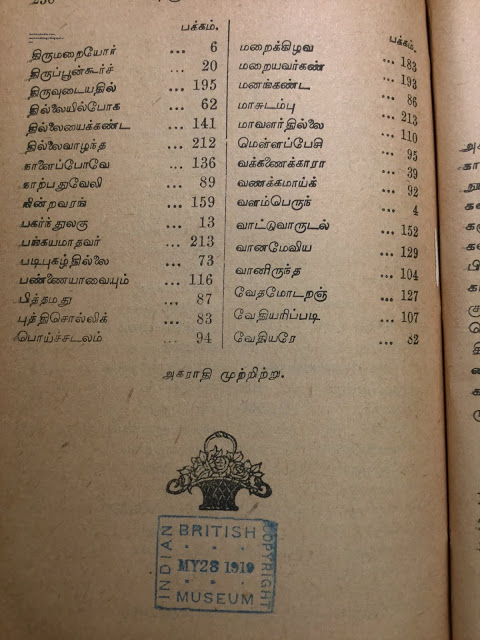 பக்கம்.
திருமறையோர் ... 6
திருப்பூன்கூர்ச் ... 20
திருவுடையதில் ... 195
தில்லையில்போக ... 62
தில்லையைக்கண்ட ... 141
தில்லைவாழந்த ... 212
நாளைப்போவே ... 136
நாற்பதுவேலி ... 89
நின்றவரங் ... 159
பகர்ந்துலகு ... 13
பங்கயமாதவர் ... 213
படிபுகழ்தில்லை ... 73
பண்ணையாவையும் ... 116
பித்தமது ... 87
புத்திசொல்லிக் ... 83
பொய்ச்சடலம் ... 94
பக்கம்.
மறைக்கிழவ ... 183
மறையவர்கண் ... 193
மனங்கண்ட ... 86
மாசுடம்பு ... 213
மாவளர்தில்லை ... 110
மெள்ளப்பேசி ... 95
வக்கணைக்காரா ... 39
வணக்கமாய்க் ... 92
வளம்பெருந் ... 4
வாட்டுவாருடல் ... 152
வானமேவிய ... 129
வானிருந்த ... 104
வேதமோடறஞ் ... 127
வேதியரிப்படி ... 107
வேதியரே ... 82
அகராதி முற்றிற்று.
BRITISH
INDIAN
MY28 1919
COPYRIGHT
MUSEUM